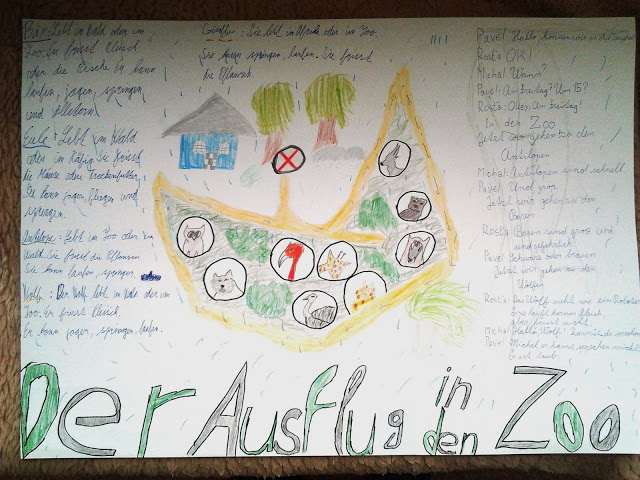 Bär: Lebt in Wald oder im
Zoo. Er frisst Fleisch
oder die Fische. Er kann
laufen, jagen, springen
und klettern.
Eule: Lebt im Wald
oder im Käfig. Sie frisst
die Mäuse oder Trockenfutter.
Sie kann jagen, fliegen und
springen.
Antilope: Lebt im Zoo oder im
Wald. Sie frisst die Pflanzen.
Sie kann laufen, springen.
Wolf: Der Wolf lebt im Wald oder im
Zoo. Er frisst Fleisch.
Er kann jagen, springen, laufen.
Giraffe: Sie lebt in Afrika oder im Zoo.
Sie kann springen, laufen. Sie frisst
die Pflanzen.
Pavel: Hallo, können wir in die Zoo gehen
Rosťa: OK!
Michal: Wann?
Pavel: Am Freitag? Um 15?
Rosťa: Okey, Am Freitag!
In der Zoo
Jetzt wir gehen zu den
Antilopen
Michal: Antilopen sind schnell
Pavel: Und groß
Jetzt wir gehen zu den
Bären
Rosťa: Bären sind groß und
und gefährlich
Pavel: Schwarz oder braun
Jetzt wir gehen zu den
Wölfen
Rosťa: Der Wolf sieht wie ein
Michal: Hallo Wolf!
Pavel: Michal er kann sprechen nicht
Er ist taub
Der Ausflug in den Zoo